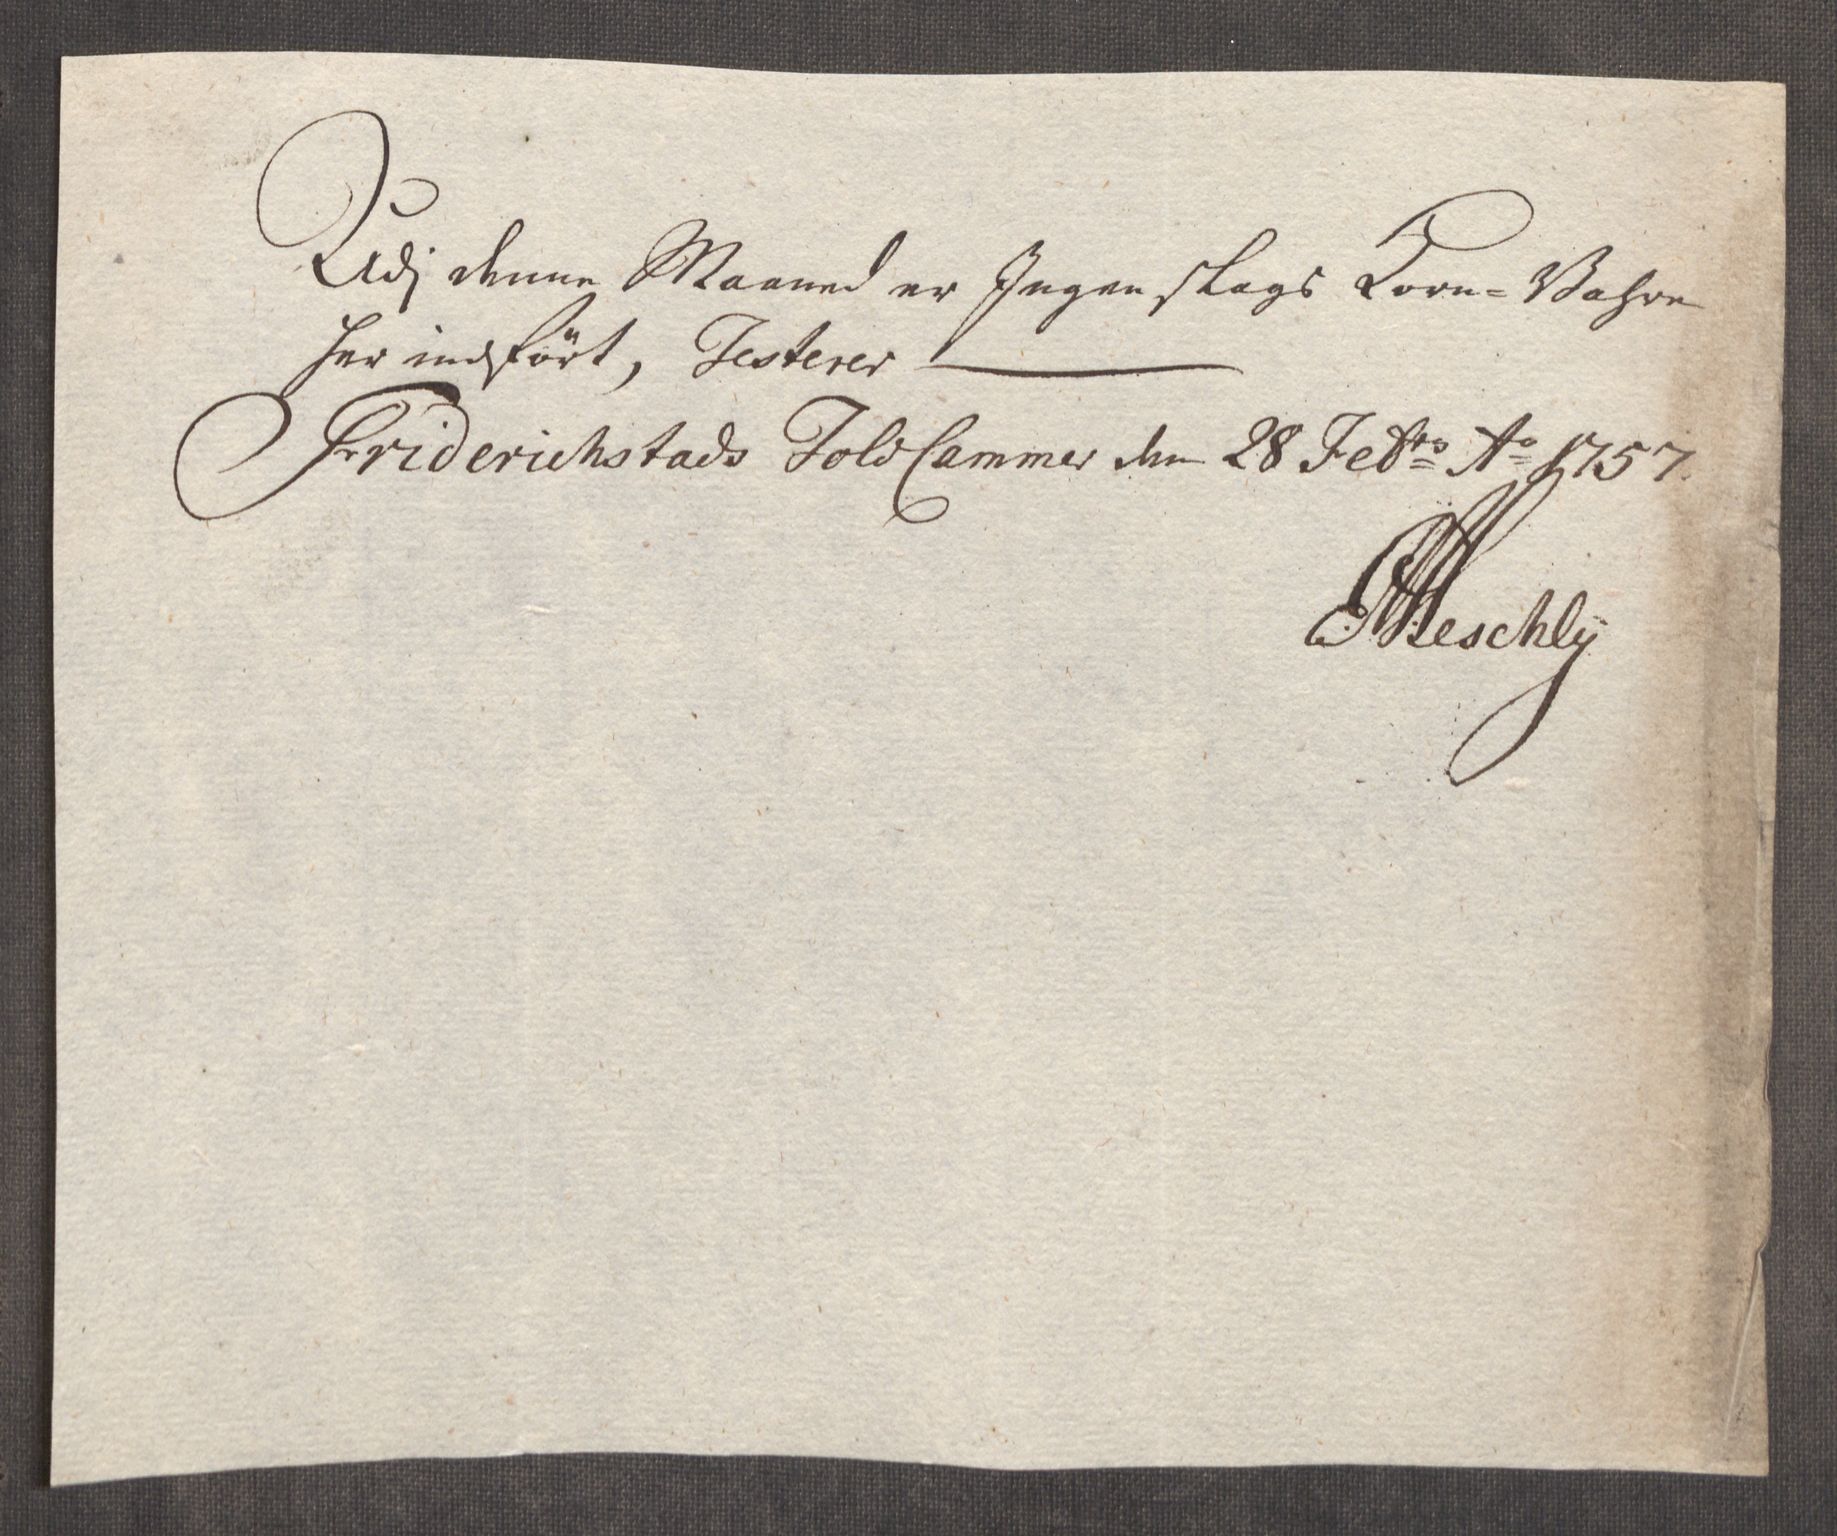 Udj denne Maaned er Ingen slags Korn-Vahre
her indført, Testerer
Friderichstads Told Cammer den 28 Febro Ao 1757.